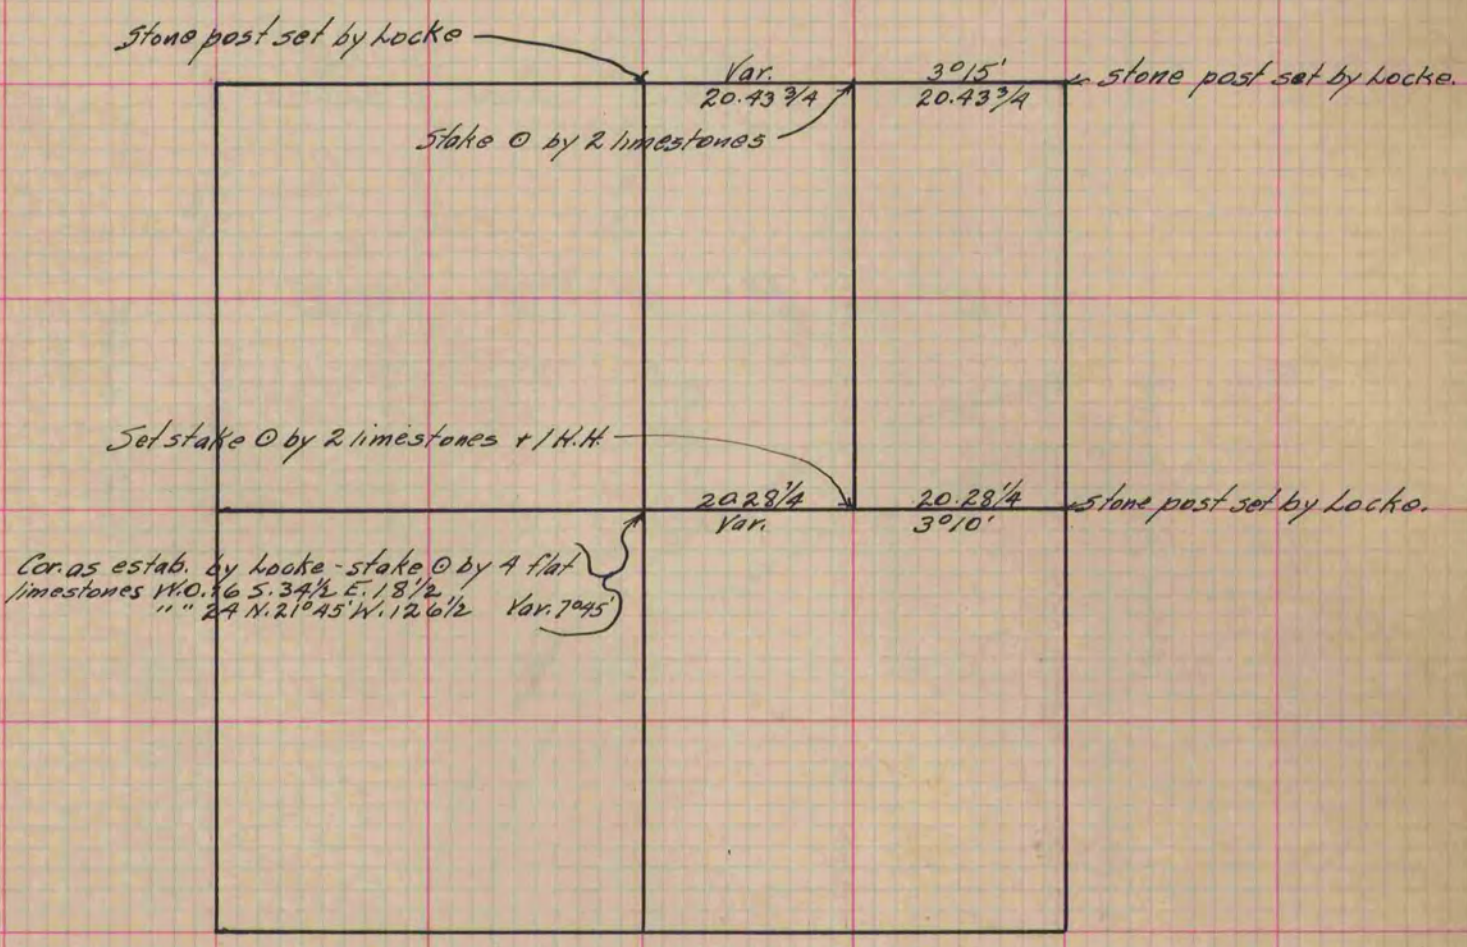 Stone post set by Locke
Var. 3°15'
20.43 3/4 20.43 3/4
stone post set by Locke.
Stake ⊙ by 2 limestones
Set stake ⊙ by 2 limestones + 1 H.H.
20.28 1/4 20.28 1/4
Var. 3°10'
stone post set by Locke.
Cor. as estab. by Locke - stake ⊙ by 4 flat
limestones W.O. 16 S. 34 1/2 E. 18 1/2
" " 24 N. 21°45' W. 126 1/2 Var. 7°45'